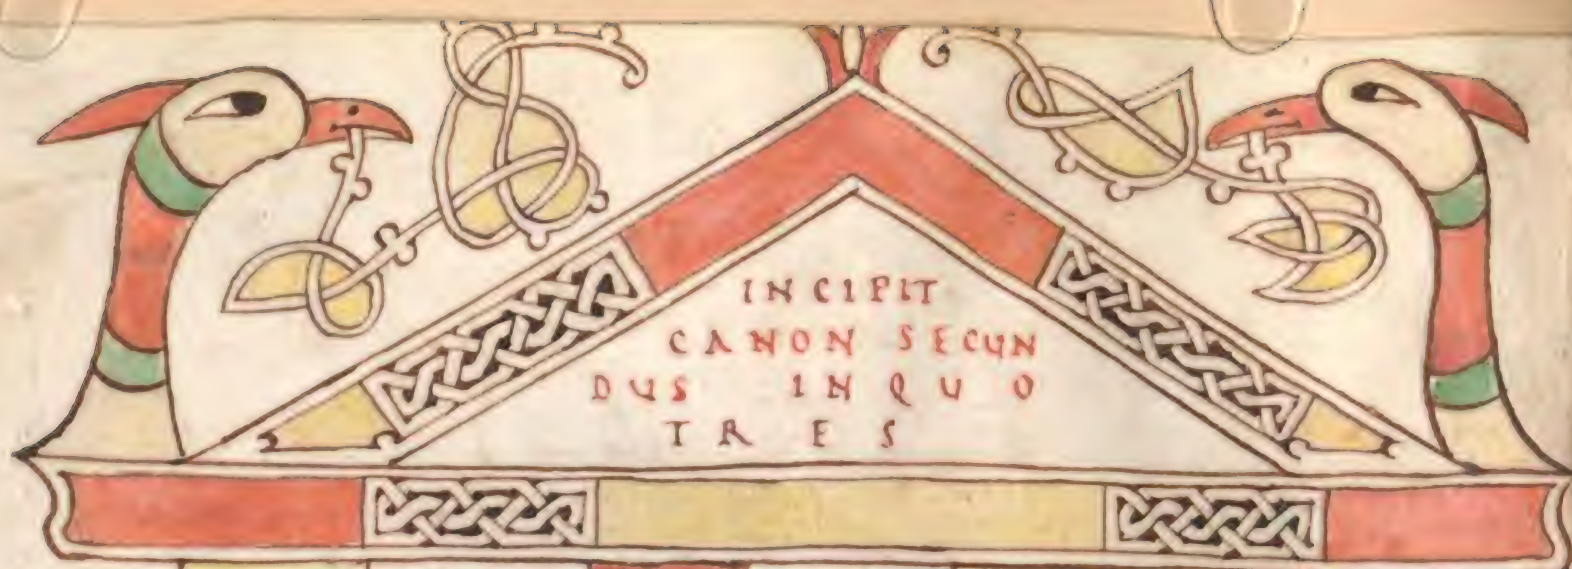 INCIPIT
CANON SECUN
DUS INQUO
TRES